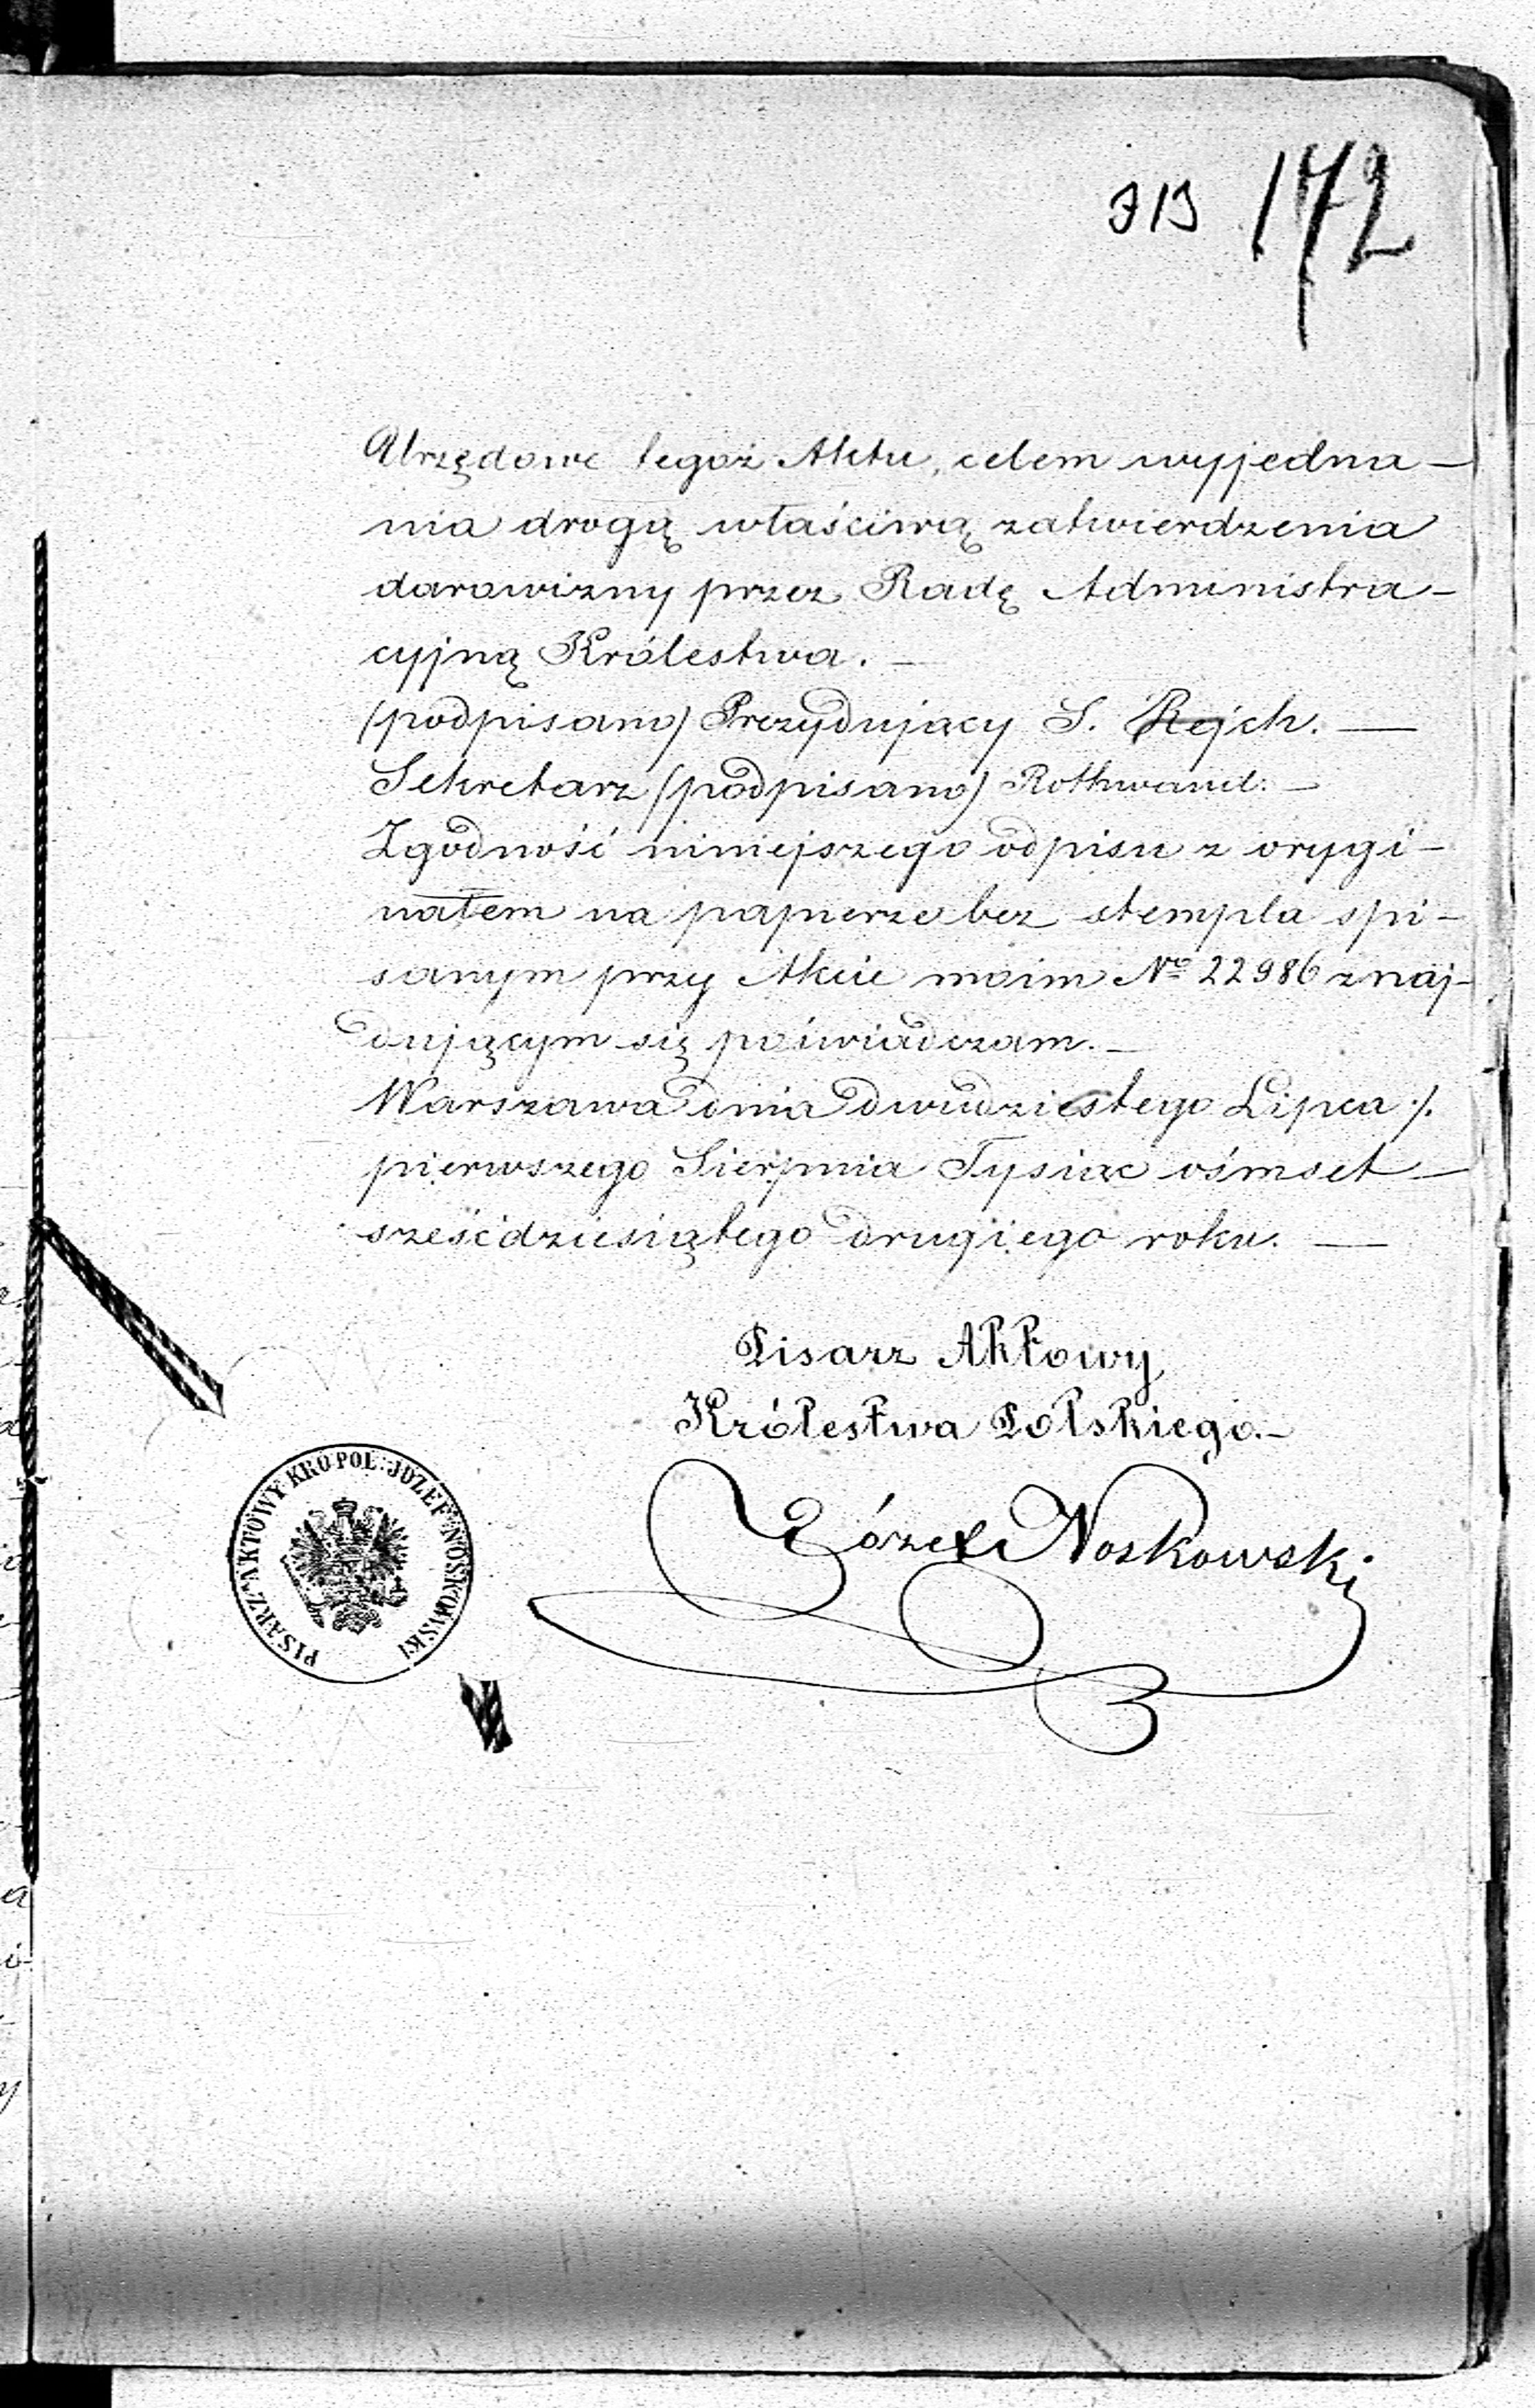 172
Urzędowe tegoż Aktu, celem wyjedna—
nia drogą właściwą zatwierdzenia
darowizny przez Radę Administra—
cyjną Królestwa. —
(podpisano) Prezydujący S. Rejch. —
Sekretarz (podpisano) Rothwand. —
Zgodność niniejszego odpisu z orygi—
nałem na papierze bez stempla spi—
sanym przy Akcie moim No 22986 znaj—
dującym się poświadczam. —
Warszawa dnia dwudziestego Lipca ·/.
pierwszego Sierpnia Tysiąc ośmset —
sześćdziesiątego drugiego roku. —
Pisarz Aktowy
Królestwa Polskiego. —
Józef Noskowski
PISARZ AKTOWY KRO POL: JOZEF NOSKOWSKI